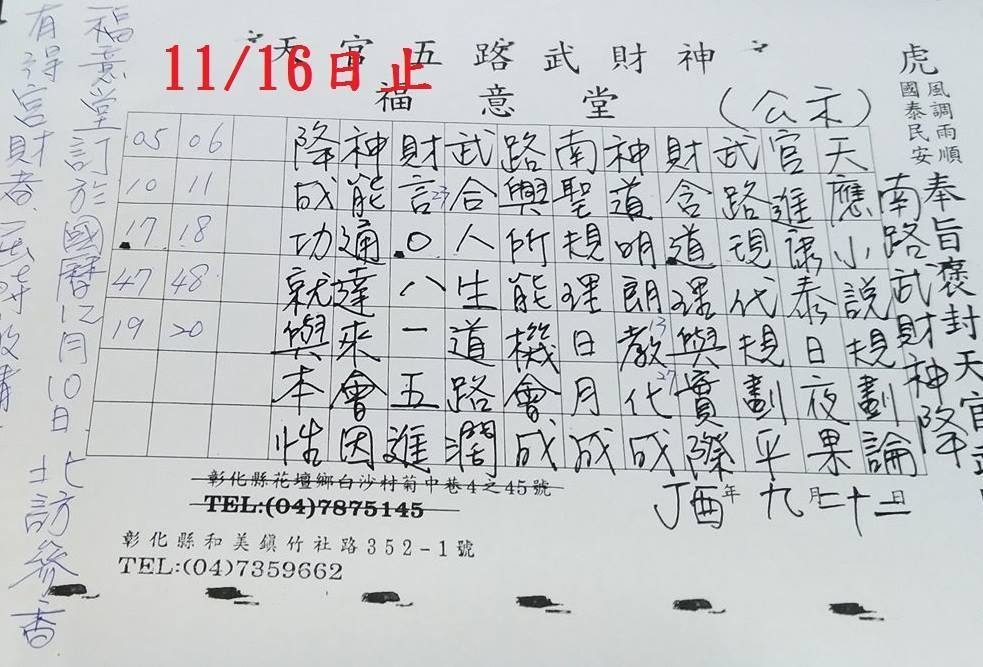 天官五路武財神
11/16日止
福意堂
(公示)
虎
風調雨順
國泰民安
奉旨褒封天官武
南路武財神降
天應小說規劃論
官進康泰日夜果
武路現代規劃平
財含道理與實際
神道明朗教代成
南聖規理日月成
路興所能機會成
武合人生道路潤
財言0八一五進
神能通達來會因
降成功就與本性
05 06
10 11
17 18
47 48
19 20
丁酉年九月二十二日
彰化縣花壇鄉白沙村菊中巷4之45號
TEL:(04)7875145
彰化縣和美鎮竹社路352-1號
TEL:(04)7359662
福意堂訂於國曆12月10日北訪參香
有得官財者